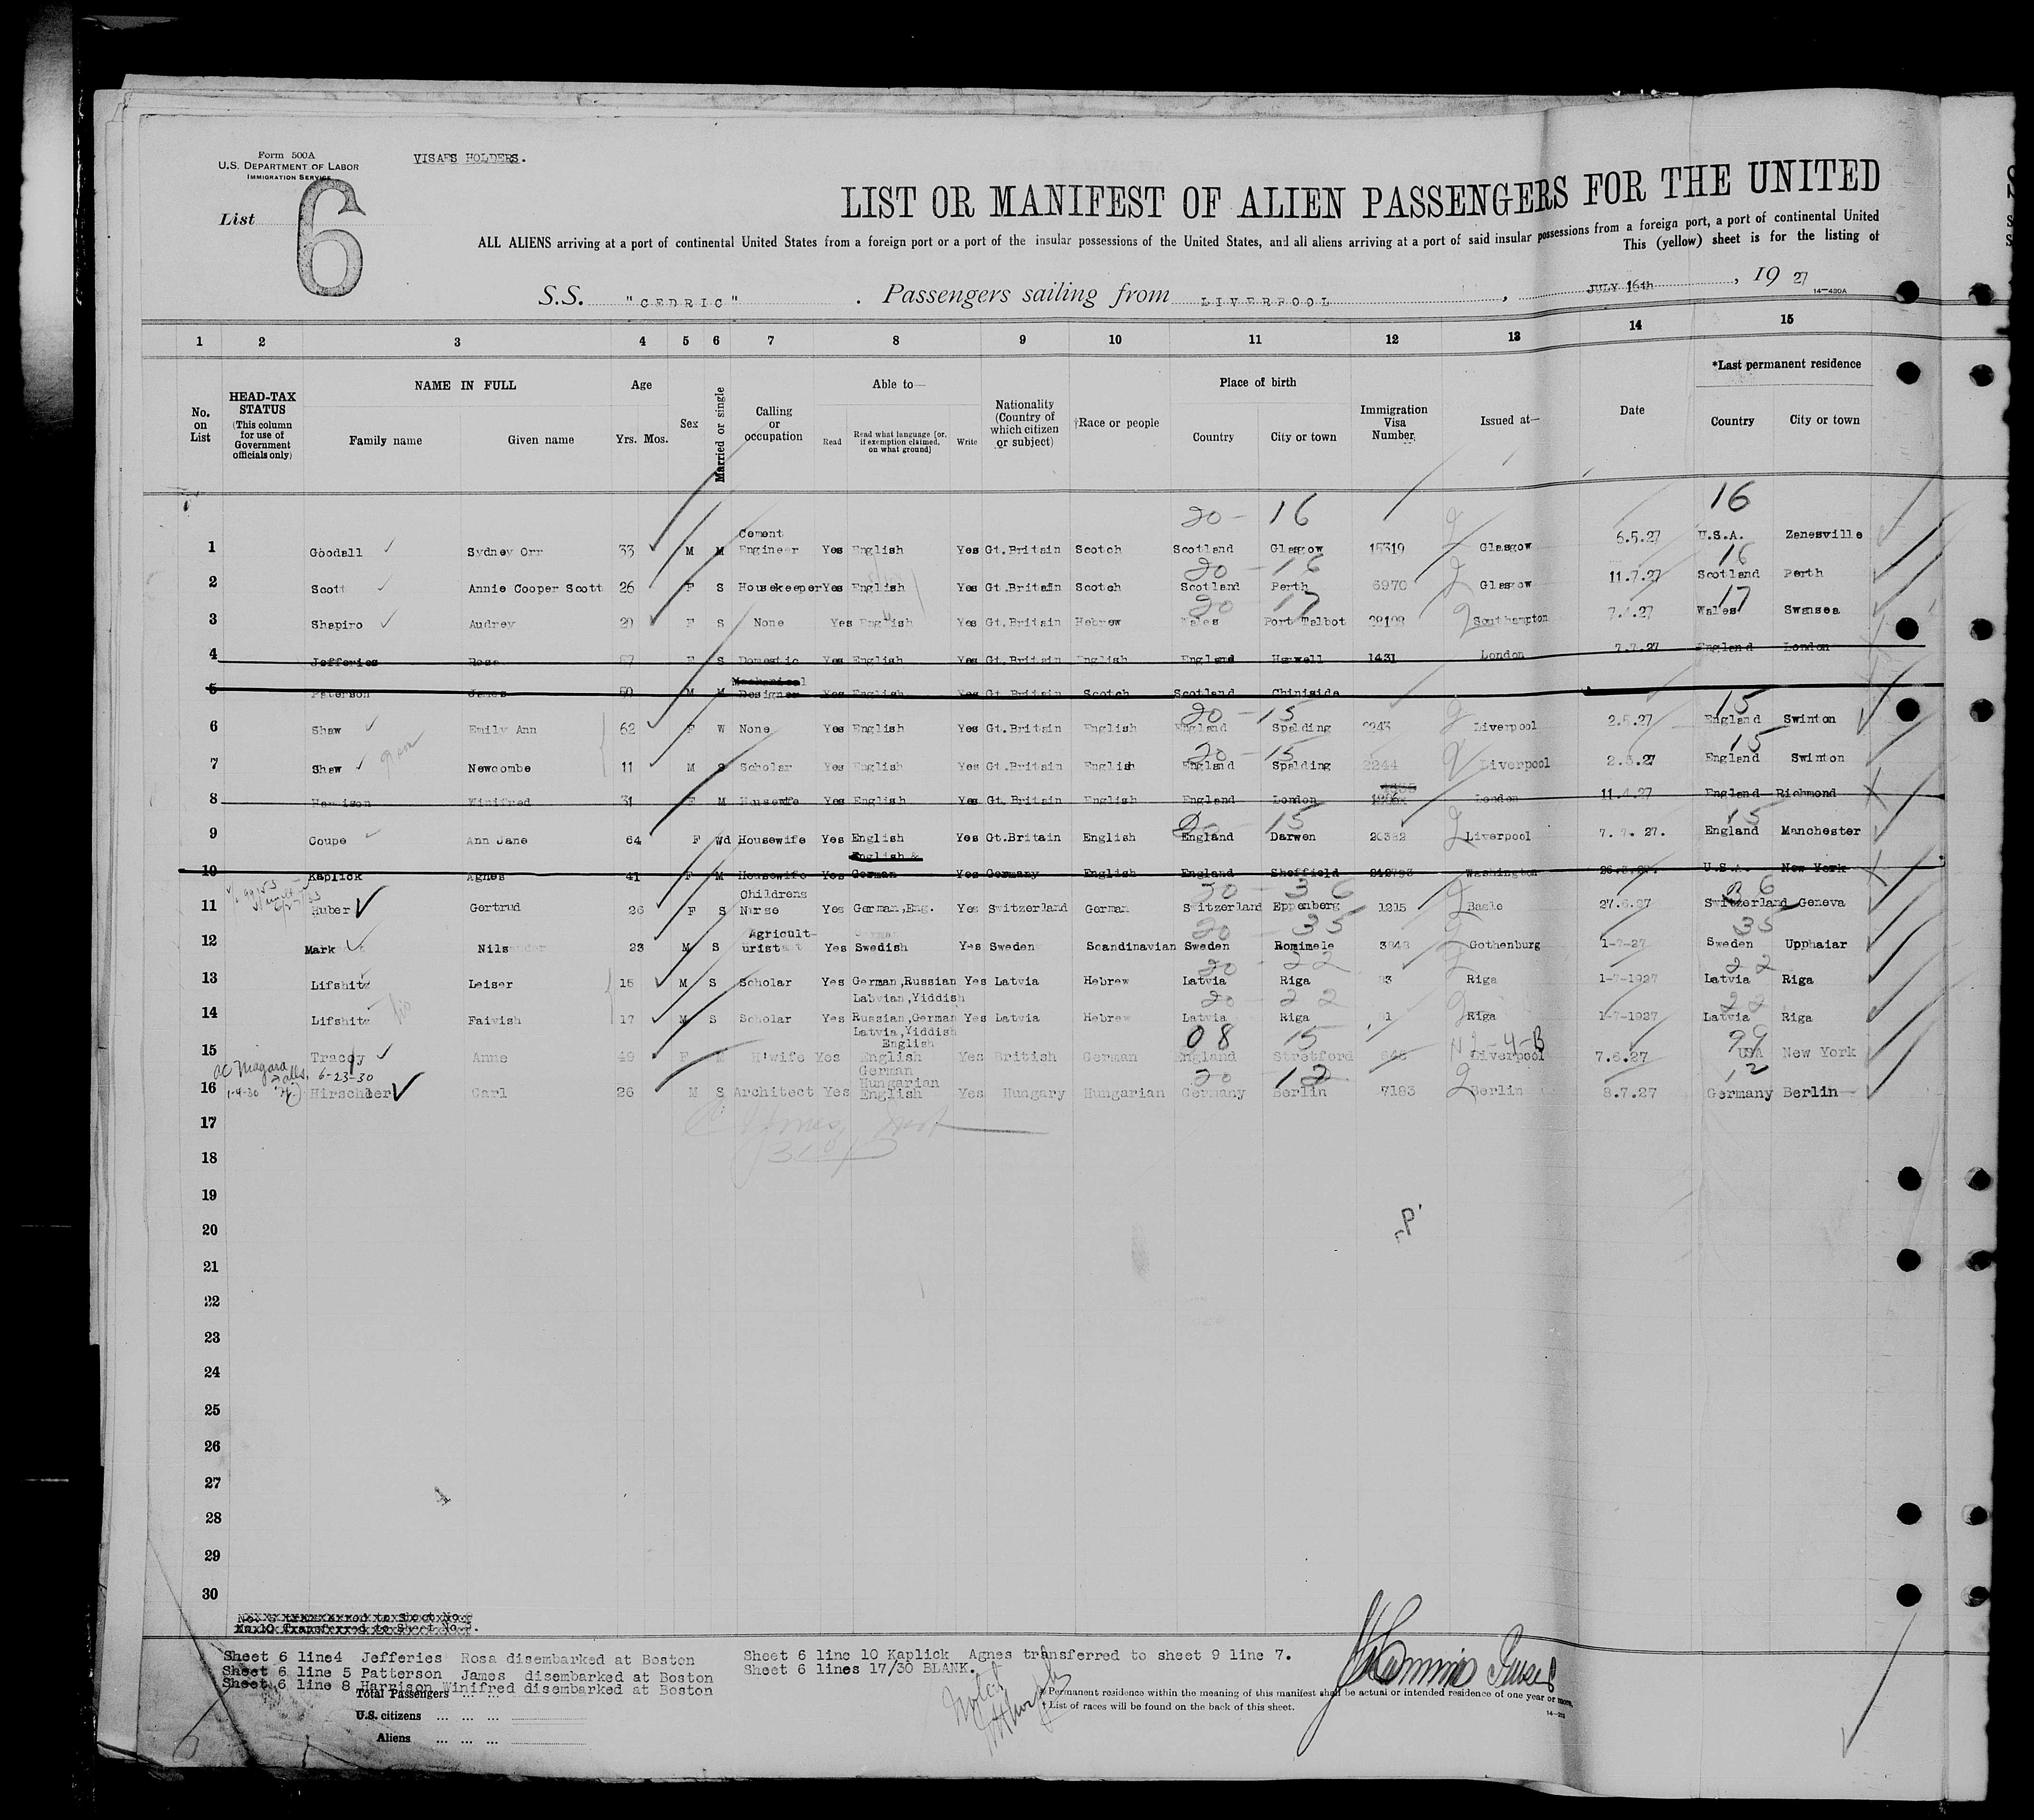 Form 500A
U.S. DEPARTMENT OF LABOR
IMMIGRATION SERVICE
VISAES HOLDERS.
List 6
LIST OR MANIFEST OF ALIEN PASSENGERS FOR THE UNITED
ALL ALIENS arriving at a port of continental United States from a foreign port or a port of the insular possessions of the United States, and all aliens arriving at a port of said insular possessions from a foreign port, a port of continental United
This (yellow) sheet is for the listing of
S.S. "CEDRIC" . Passengers sailing from LIVERPOOL , JULY 16th , 19 27
14—430A
1 2 3 4 5 6 7 8 9 10 11 12 13 14 15
No. on List
HEAD-TAX STATUS (This column for use of Government officials only)
NAME IN FULL
Family name Given name
Age
Yrs. Mos.
Sex
Married or single
Calling or occupation
Able to—
Read Read what language [or, if exemption claimed, on what ground] Write
Nationality (Country of which citizen or subject)
†Race or people
Place of birth
Country City or town
Immigration Visa Number
Issued at—
Date
*Last permanent residence
Country City or town
20 - 16 16
1 Goodall Sydney Orr 33 M M Cement Engineer Yes English Yes Gt.Britain Scotch Scotland Glasgow 15319 Glasgow 6.5.27 U.S.A. Zanesville
20 - 16 16
2 Scott Annie Cooper Scott 26 F S Housekeeper Yes English Yes Gt.Britain Scotch Scotland Perth 6970 Glasgow 11.7.27 Scotland Perth
20 17 17
3 Shapiro Audrey 20 F S None Yes English Yes Gt.Britain Hebrew Wales Port Talbot Southampton 7.4.27 Wales Swansea
4 Jefferies Rosa F S Domestic Yes English Yes Gt.Britain English England Harwell 1431 London 7.7.27 England London
5 Paterson James 50 M M Mechanical Designer Yes English Yes Gt Britain Scotch Scotland Chiniside
20 - 15 15
6 Shaw Emily Ann 62 F W None Yes English Yes Gt.Britain English England Spalding 2243 Liverpool 2.5.27 England Swinton
20 - 15 15
7 Shaw Newcombe 11 M S Scholar Yes English Yes Gt.Britain English England Spalding 2244 Liverpool 2.5.27 England Swinton
8 Harrison Winifred 31 F M Housewife Yes English Yes Gt.Britain English England London London 11.4.27 England Richmond
15 15
9 Coupe Ann Jane 64 F Wd Housewife Yes English Yes Gt.Britain English England Darwen 20382 Liverpool 7.7.27. England Manchester
10 Kaplick Agnes 41 F M Housewife Yes English & German Yes Germany English England Sheffield Washington U.S.A. New York
20 - 36 36
11 Huber Gertrud 26 F S Childrens Nurse Yes German,Eng. Yes Switzerland German Switzerland Eppenberg 1215 Basle 27.6.27 Switzerland Geneva
20 35 35
12 Mark Nils 23 M S Agricult- urist Yes Swedish Yes Sweden Scandinavian Sweden Rommele Gothenburg 1-7-27 Sweden Upphaiar
20 - 22 22
13 Lifshitz Leiser 15 M S Scholar Yes German,Russian Labvian,Yiddish Yes Latvia Hebrew Latvia Riga 93 Riga 1-7-1927 Latvia Riga
20 - 22 22
14 Lifshitz Faivish 17 M S Scholar Yes Russian,German Latvia,Yiddish English Yes Latvia Hebrew Latvia Riga 91 Riga 1-7-1927 Latvia Riga
08 15 99
15 Tracey Anne 49 F M H'wife Yes English Yes British German England Stretford Liverpool 7.6.27 USA New York
Niagara Falls, 6-23-30
20 - 12 12
16 Hirschler Carl 26 M S Architect Yes German Hungarian English Yes Hungary Hungarian Germany Berlin 7183 Berlin 8.7.27 Germany Berlin
17
18
19
20
21
22
23
24
25
26
27
28
29
30
No.10 Transferred to Sheet No.
Sheet 6 line4 Jefferies Rosa disembarked at Boston
Sheet 6 line 5 Patterson James disembarked at Boston
Sheet 6 line 8 Harrison Winifred disembarked at Boston
Sheet 6 line 10 Kaplick Agnes transferred to sheet 9 line 7.
Sheet 6 lines 17/30 BLANK.
Total Passengers ... ...
U.S. citizens ... ... ...
Aliens ... ... ...
* Permanent residence within the meaning of this manifest shall be actual or intended residence of one year or more.
† List of races will be found on the back of this sheet.